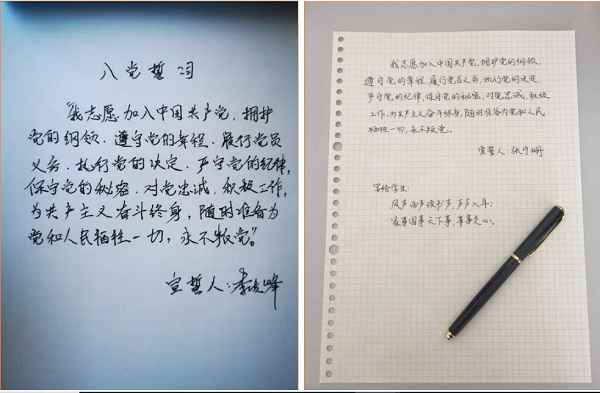 入党誓词
“我志愿加入中国共产党，拥护
党的纲领、遵守党的章程、履行党员
义务、执行党的决定、严守党的纪律，
保守党的秘密、对党忠诚、积极工作，
为共产主义奋斗终身，随时准备为
党和人民牺牲一切，永不叛党”。
宣誓人：李峰
我志愿加入中国共产党，拥护党的纲领，
遵守党的章程，履行党员义务，执行党的决定，
严守党的纪律，保守党的秘密，对党忠诚，积极
工作，为共产主义奋斗终身，随时准备为党和人民
牺牲一切，永不叛党。
宣誓人：张守珊
写给学生：
风声雨声读书声，声声入耳；
家事国事天下事，事事关心。